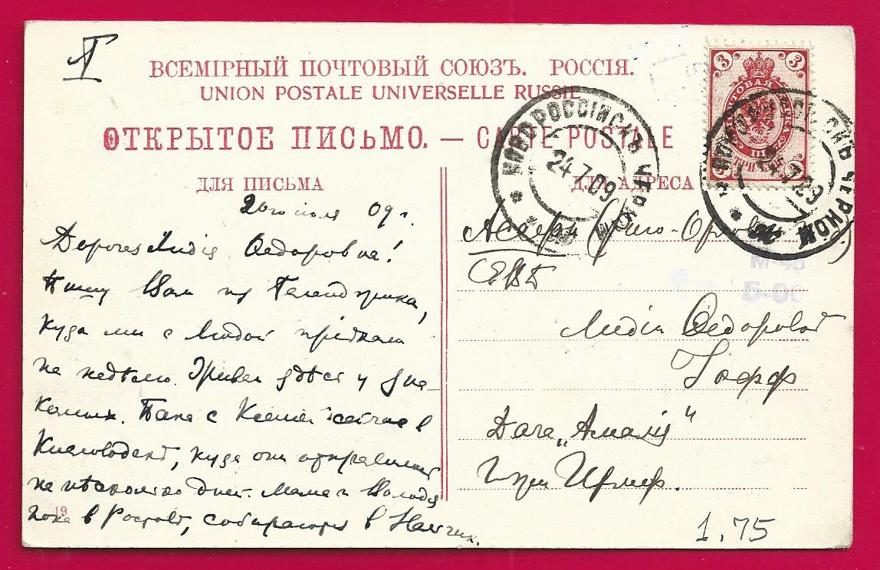 ВСЕМІРНЫЙ ПОЧТОВЫЙ СОЮЗЪ. РОССІЯ.
UNION POSTALE UNIVERSELLE RUSSIE
ОТКРЫТОЕ ПИСЬМО. — CARTE POSTALE
ДЛЯ ПИСЬМА
ДЛЯ АДРЕСА
3 3
НОВОРОССІЙСКЪ ЧЕРНОМ
24.7.09
24.7.09
20го іюля 09 г.
Дорогая Лидія Ѳедоровна!
Пишу Вам из Геленджика,
куда мы с Людой пріѣхали
на недѣлю. Живем здѣсь у
Папа с Ксеніей сейчас в
Кисловодскѣ, куда они отправились
на нѣсколько дней. Мама и Володя
пока в Ростовѣ, собираются в Нальчик.
19
Лидіи Ѳедоровнѣ
Гофф
Дача „Амалія"
Б-00
1.75